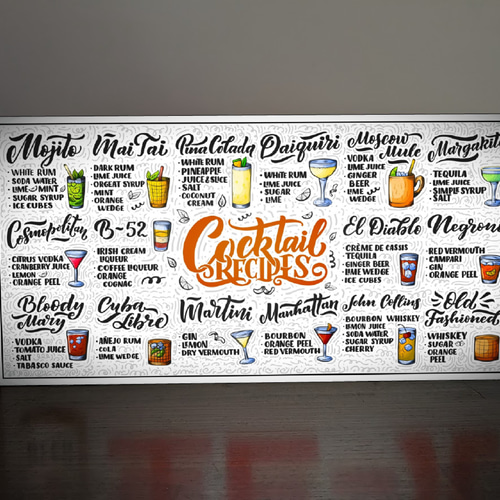 Mojito
WHITE RUM
• SODA WATER
• LIME • MINT
• SUGAR SYRUP
• ICE CUBES
Mai Tai
• DARK RUM
• LIME JUICE
• ORGEAT SYRUP
• MINT
• ORANGE
WEDGE
Pina Colada
• WHITE RUM
PINEAPPLE
JUICE & SLICE
SALT
COCONUT
CREAM
Daiquiri
• WHITE RUM
• LIME JUICE
• SUGAR
• LIME
Moscow
Mule
• VODKA
• LIME JUICE
• GINGER
BEER
• LIME
WEDGE
Margarita
TEQUILA
LIME JUICE
SIMPLE SYRUP
SALT
Cosmopolitan
CITRUS VODKA
CRANBERRY JUICE
LEMON
ORANGE PEEL
B-52
IRISH CREAM
LIQUEUR
COFFEE LIQUEUR
ORANGE
COGNAC
Cocktail
RECIPES
El Diablo
CRÈME DE CASSIS
• TEQUILA
• GINGER BEER
• LIME WEDGE
• ICE CUBES
Negroni
RED VERMOUTH
CAMPARI
GIN
ORANGE PEEL
Bloody
Mary
VODKA
• TOMATO JUICE
SALT
• TABASCO SAUCE
Cuba
Libre
• AÑEJO RUM
• COLA
• LIME WEDGE
Martini
GIN
LEMON
DRY VERMOUTH
Manhattan
• BOURBON
• ORANGE PEEL
• RED VERMOUTH
John Collins
BOURBON WHISKEY
• LEMON JUICE
• SODA WATER
• SUGAR SYRUP
• CHERRY
Old
Fashioned
WHISKEY
• SUGAR
• ORANGE
PEEL